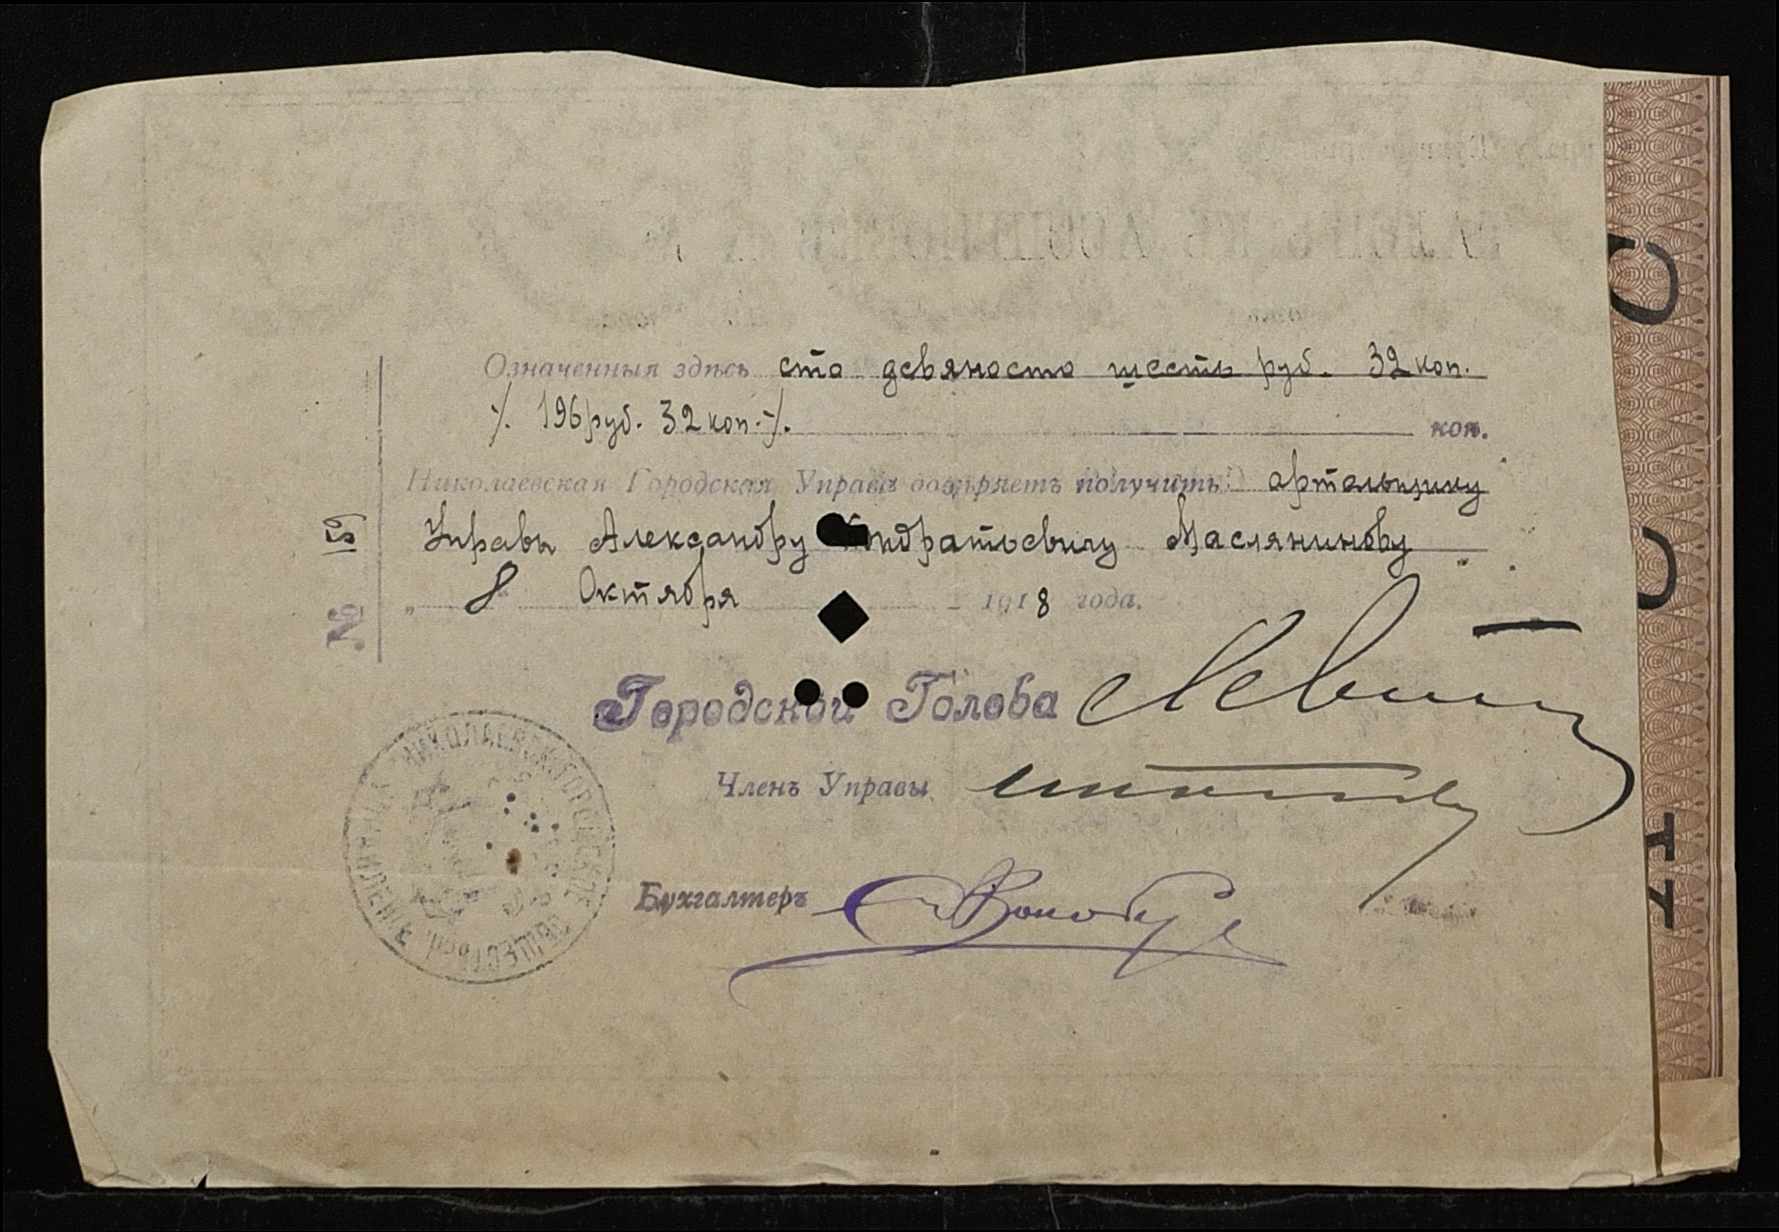 Означенныя здѣсь сто девяносто шесть руб. 32 коп.
٪ 196 руб. 32 коп. ٪ коп.
Николаевская Городская Управа довѣряетъ получить артельщику
Управы Александру Маслянинову
„ 8 " Октября 1918 года.
№
Городской Голова
Членъ Управы
Бухгалтеръ
НИКОЛАЕВСК. ГОРОДСКОЕ ОБЩЕСТВЕН. УПРАВЛЕНІЕ